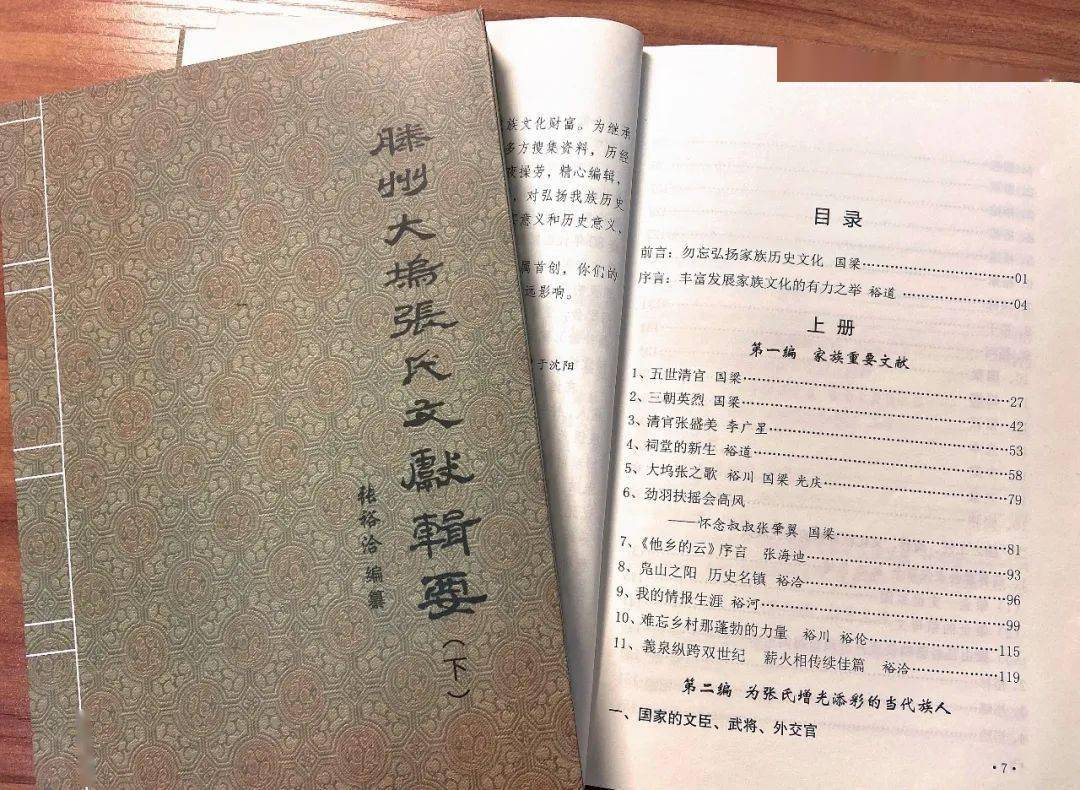 滕州大塢張氏文獻輯要（下）
张裕洽 编纂
族文化财富。为继承
多方搜集资料，历经
操劳，精心编辑，
，对弘扬我族历史
意义和历史意义、
属首创，你们的
远影响。
于沈阳
目录
前言：勿忘弘扬家族历史文化 国梁……01
序言：丰富发展家族文化的有力之举 裕道……04
上册
第一编 家族重要文献
1、五世清官 国梁……27
2、三朝英烈 国梁……42
3、清官张盛美 李广星……53
4、祠堂的新生 裕道……58
5、大坞张之歌 裕川 国梁 光庆……79
6、劲羽扶摇会高风
——怀念叔叔张肇翼 国梁……81
7、《他乡的云》序言 张海迪……93
8、凫山之阳 历史名镇 裕洽……96
9、我的情报生涯 裕河……99
10、难忘乡村那蓬勃的力量 裕川 裕伦……115
11、義泉纵跨双世纪 薪火相传续佳篇 裕洽……119
第二编 为张氏增光添彩的当代族人
一、国家的文臣、武将、外交官
·7·